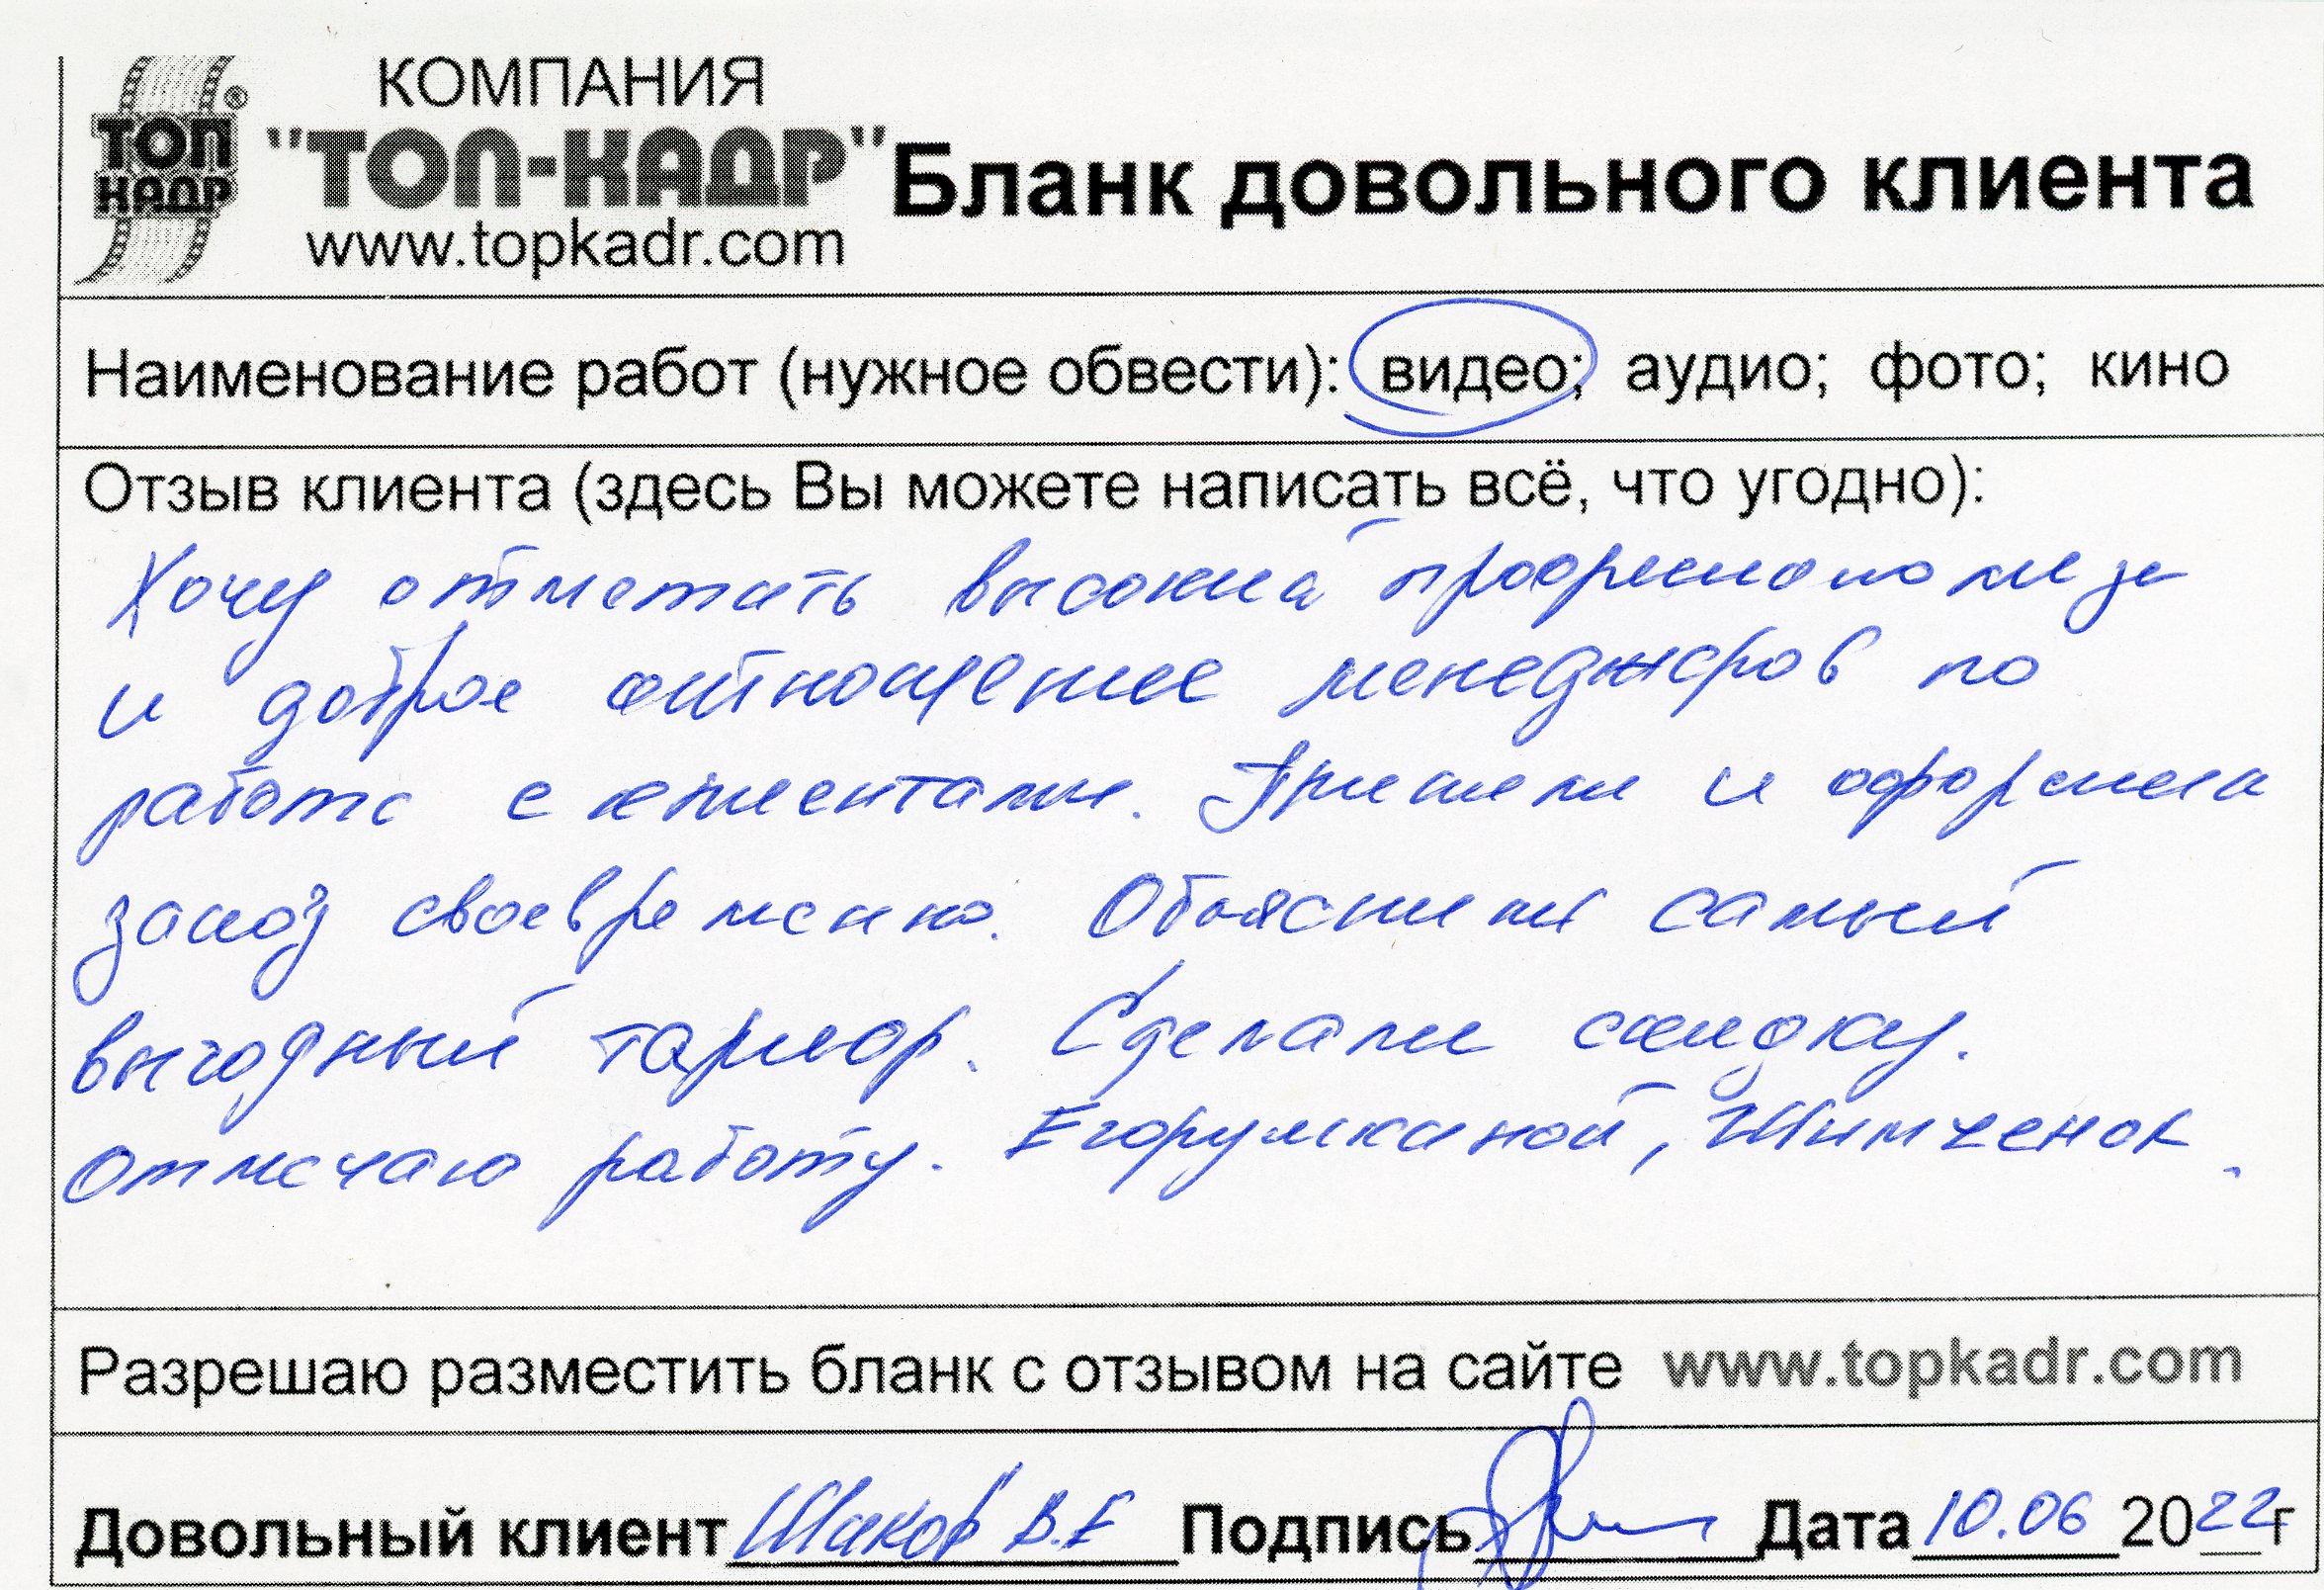 ТОП
КАДР
®
КОМПАНИЯ
"ТОП-КАДР"
www.topkadr.com
Бланк довольного клиента
Наименование работ (нужное обвести): видео; аудио; фото; кино
Отзыв клиента (здесь Вы можете написать всё, что угодно):
Хочу отметить высокий
и доброе отношение менеджеров по
работе с клиентами. Приняли и оформили
заказ своевременно. Объяснили самый
выгодный тариф. Сделали скидку.
Отмечаю работу. Егорушкиной, Шимченок.
Разрешаю разместить бланк с отзывом на сайте www.topkadr.com
Довольный клиент Шаков В.Е Подпись Дата 10.06 2022г